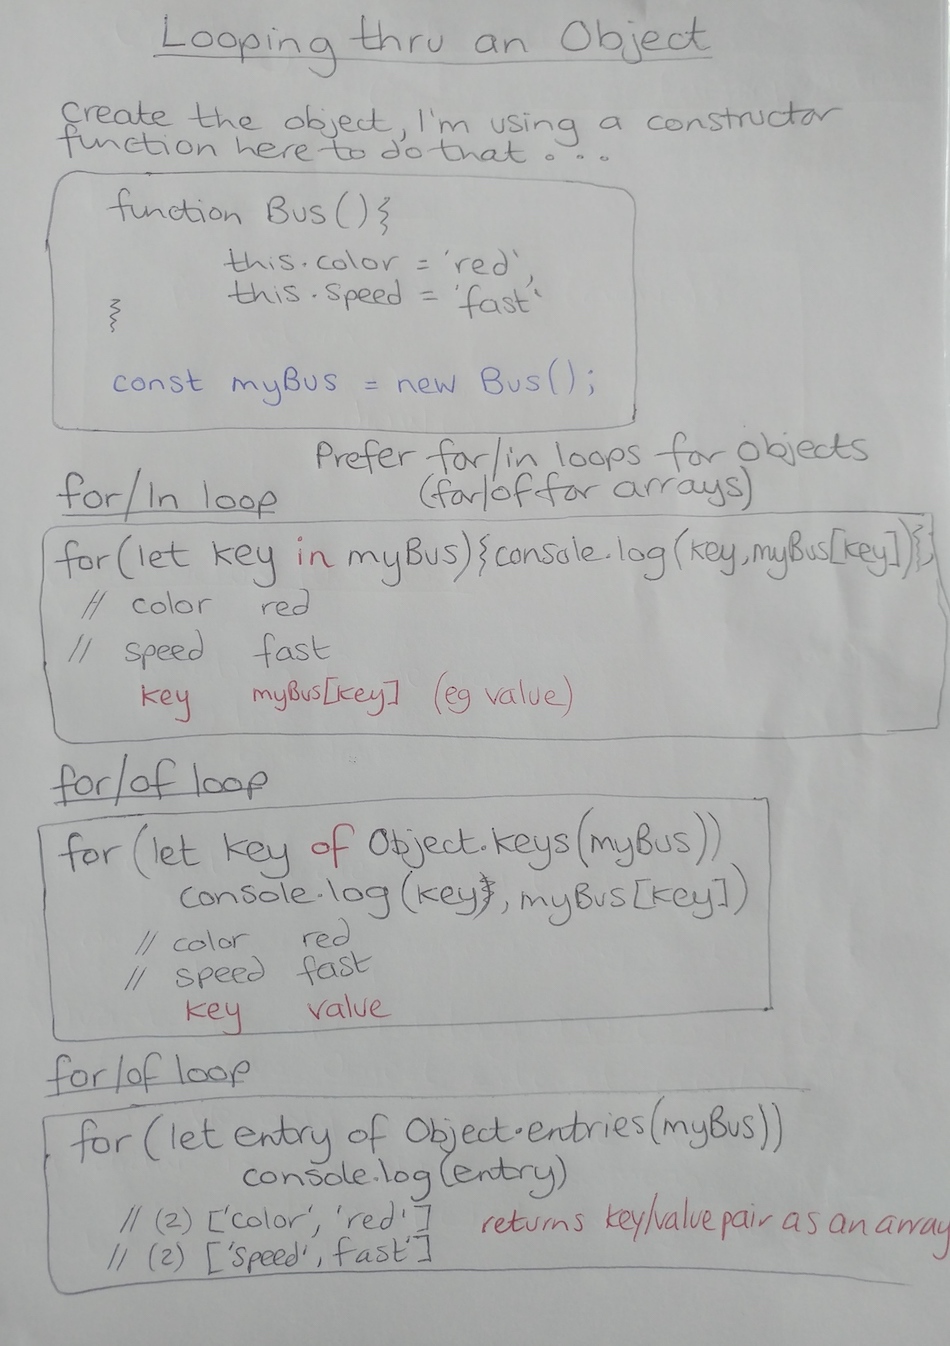 Looping thru an Object
Create the object, I'm using a constructor
function here to do that ....
function Bus(){
this.color = 'red',
this.speed = 'fast'
}
const myBus = new Bus();
Prefer for/in loops for objects
(for/of for arrays)
for/In loop
for(let key in myBus){console.log(key,myBus[key])};
// color red
// speed fast
key myBus[key] (eg value)
for/of loop
for (let key of Object.keys(myBus))
console.log(key, myBus[key])
// color red
// speed fast
key value
for/of loop
for (let entry of Object.entries(myBus))
console.log(entry)
// (2) ['color', 'red'] returns key/value pair as an array
// (2) ['speed', fast']